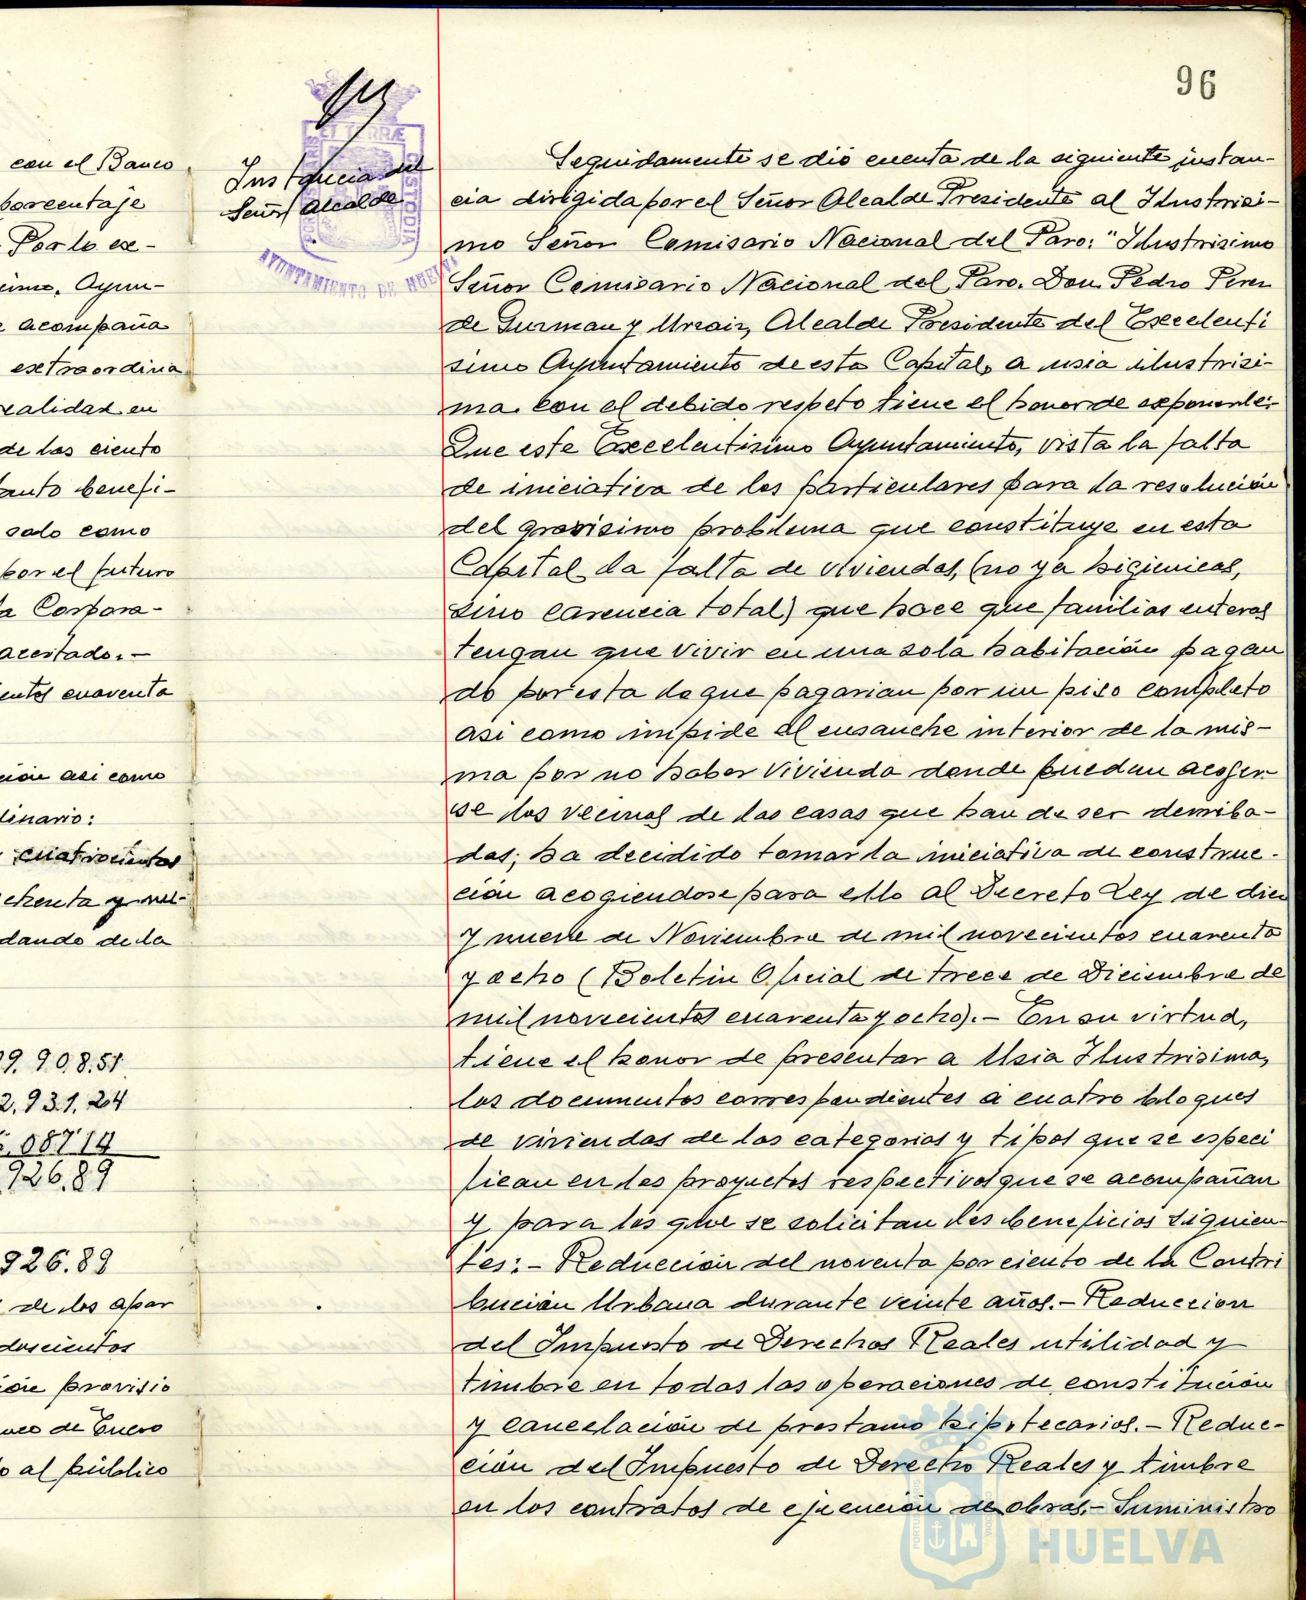 96
con el Banco
porcentaje
Por lo ex-
cimo. Ayun-
e acompaña
extraordina
realidad en
de las ciento
tanto benefi-
solo como
por el futuro
la Corpora-
acertado.-
cientos cuarenta
ción asi como
dinario:
cuatrocientos
ochenta y nue-
dando de la
99.908.51
2.931.24
087 14
926.89
926.89
de los apar
doscientos
ción provisio
nueo de Enero
o al público
Instancia del
Señor Alcalde
AYUNTAMIENTO DE HUELVA
Seguidamente se dio cuenta de la siguiente instan-
cia dirigida por el Señor Alcalde Presidente al Ilustrisi-
mo Señor Comisario Nacional del Paro: "Ilustrisimo
Señor Comisario Nacional del Paro. Don Pedro Perez
de Guzman y Urzaiz, Alcalde Presidente del Excelenti
simo Ayuntamiento de esta Capital, a usia ilustrisi-
ma con el debido respeto tiene el honor de exponerle:-
Que este Excelentisimo Ayuntamiento, vista la falta
de iniciativa de los particulares para la resolución
del gravisimo problema que constituye en esta
Capital la falta de viviendas, (no ya higienicas,
sino carencia total) que hace que familias enteras
tengan que vivir en una sola habitación pagan
do por esta lo que pagarian por un piso completo
asi como impide el ensanche interior de la mis-
ma por no haber vivienda donde puedan acojer-
se los vecinos de las casas que han de ser derriba-
das; ha decidido tomar la iniciativa de construc-
ción acogiendose para ello al Decreto Ley de diez
y nueve de Noviembre de mil novecientos cuarenta
y ocho (Boletin Oficial de trece de Diciembre de
mil novecientos cuarenta y ocho).- En su virtud,
tiene el honor de presentar a Usia Ilustrisima,
los documentos correspondientes a cuatro bloques
de viviendas de las categorias y tipos que se especi
fican en los proyectos respectivos que se acompañan
y para los que se solicitan los beneficios siguien-
tes:- Reducción del noventa por ciento de la Contri
bución Urbana durante veinte años.- Reduccion
del Impuesto de Derechos Reales utilidad y
timbre en todas las operaciones de constitución
y cancelación de prestamo hipotecarios.- Reduc-
ción del Impuesto de Derecho Reales y timbre
en los contratos de ejecución de obras.- Suministro
HUELVA